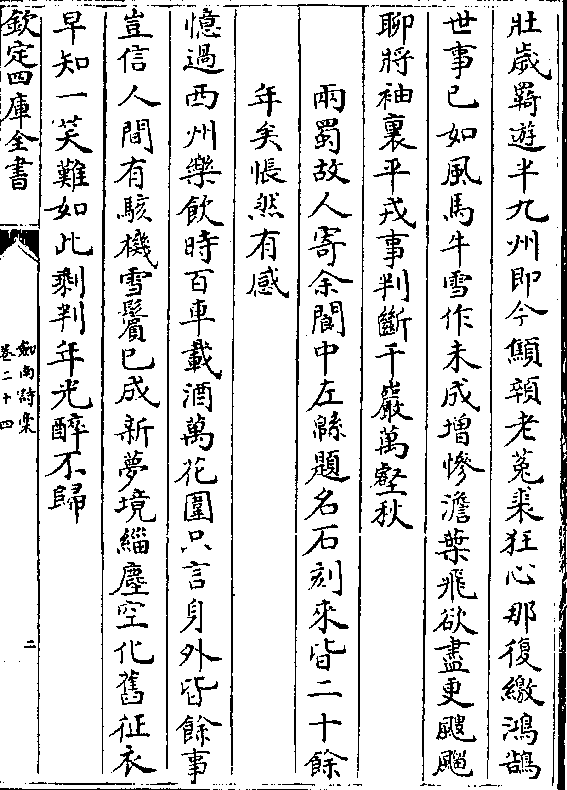 壯歲羇遊半九州即今顦顇老菟裘狂心那復繳鴻鵠
世事已如風馬牛雪作未成增慘澹葉飛欲盡更颼飀
聊將袖裏平戎事判斷千巖萬壑秋
兩蜀故人寄余閬中左緜題名石刻來皆二十餘
年矣悵然有感
憶過西州樂飲時百車載酒萬花圍只言身外皆餘事
豈信人間有駭機雪鬢已成新夢境緇塵空化舊征衣
早知一笑難如此剩判年光醉不歸
欽定四庫全書
劍南詩稾
卷二十四
二